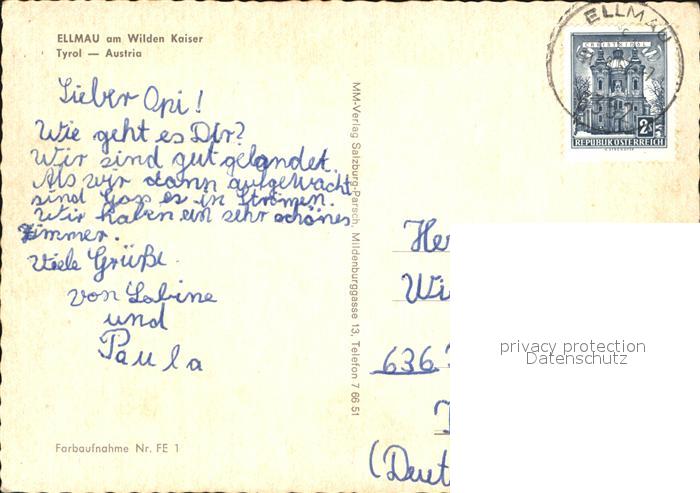 ELLMAU am Wilden Kaiser
Tyrol — Austria
Lieber Opi!
Wie geht es Dir?
Wir sind gut gelandet.
Als wir dann aufgewacht
sind goss es in Strömen.
Wir haben ein sehr schönes
Zimmer.
Viele Grüße
von Sabine
und
Paula
Farbaufnahme Nr. FE 1
MM-Verlag Salzburg-Parsch, Mildenburggasse 13, Telefon 7 66 51
ELLMAU
CHRISTKINDL
2S
REPUBLIK ÖSTERREICH
He
Wi
636
(Deut
privacy protection
Datenschutz